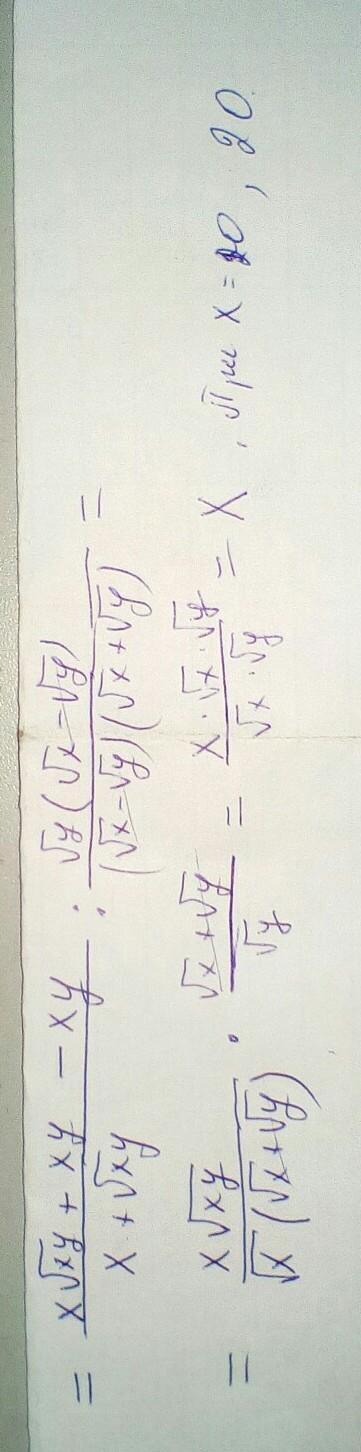 = \frac{x\sqrt{xy} + xy - xy}{x + \sqrt{xy}} : \frac{\sqrt{y}(\sqrt{x} - \sqrt{y})}{(\sqrt{x} - \sqrt{y})(\sqrt{x} + \sqrt{y})} =
= \frac{x\sqrt{xy}}{\sqrt{x}(\sqrt{x} + \sqrt{y})} \cdot \frac{\sqrt{x} + \sqrt{y}}{\sqrt{y}} = \frac{x \cdot \sqrt{x} \cdot \sqrt{y}}{\sqrt{x} \cdot \sqrt{y}} = x, при x = 20, 20.